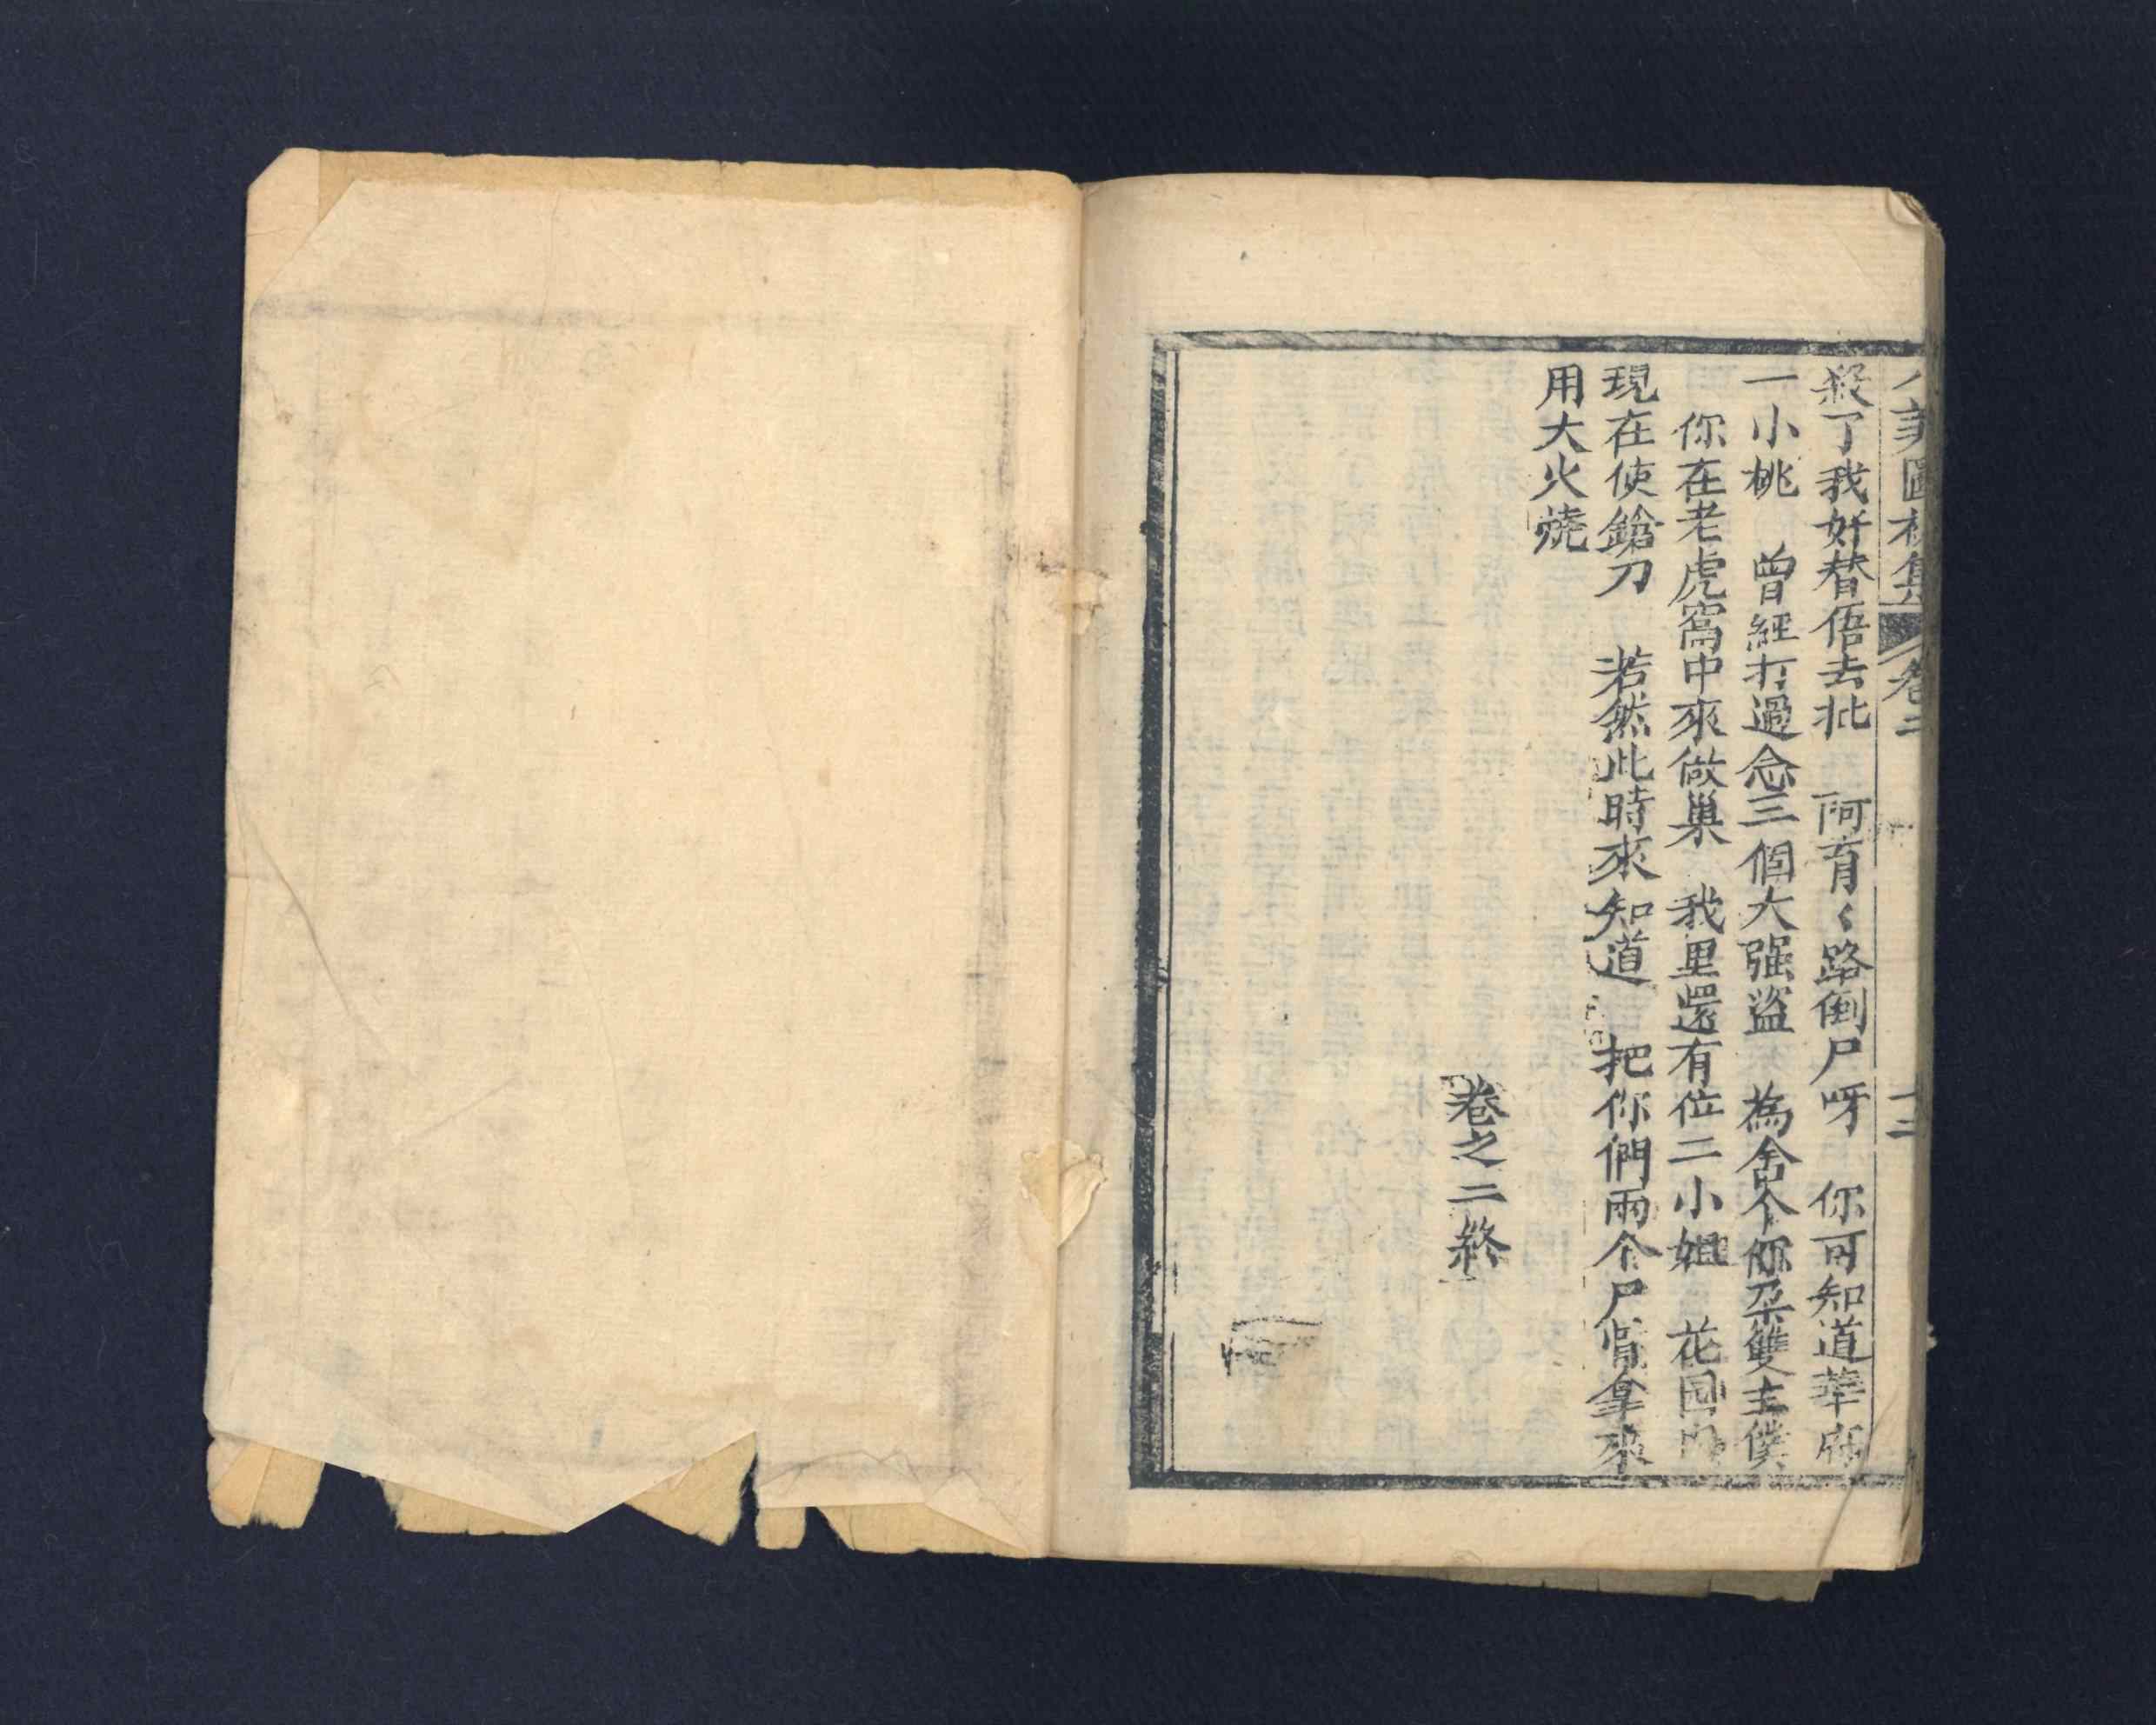 美圖初集 卷二 十二
殺了我好替俉去批 阿育〻路倒尸呀 你可知道華府
一小桃 曾經打過念三個大强盜 為舍个你朶雙主僕
你在老虎窩中來做巢 我里還有位二小姐 花园內
現在使鎗刀 若然此時來知道 把你們兩个尸骨拿來
用大火燒
卷之二終